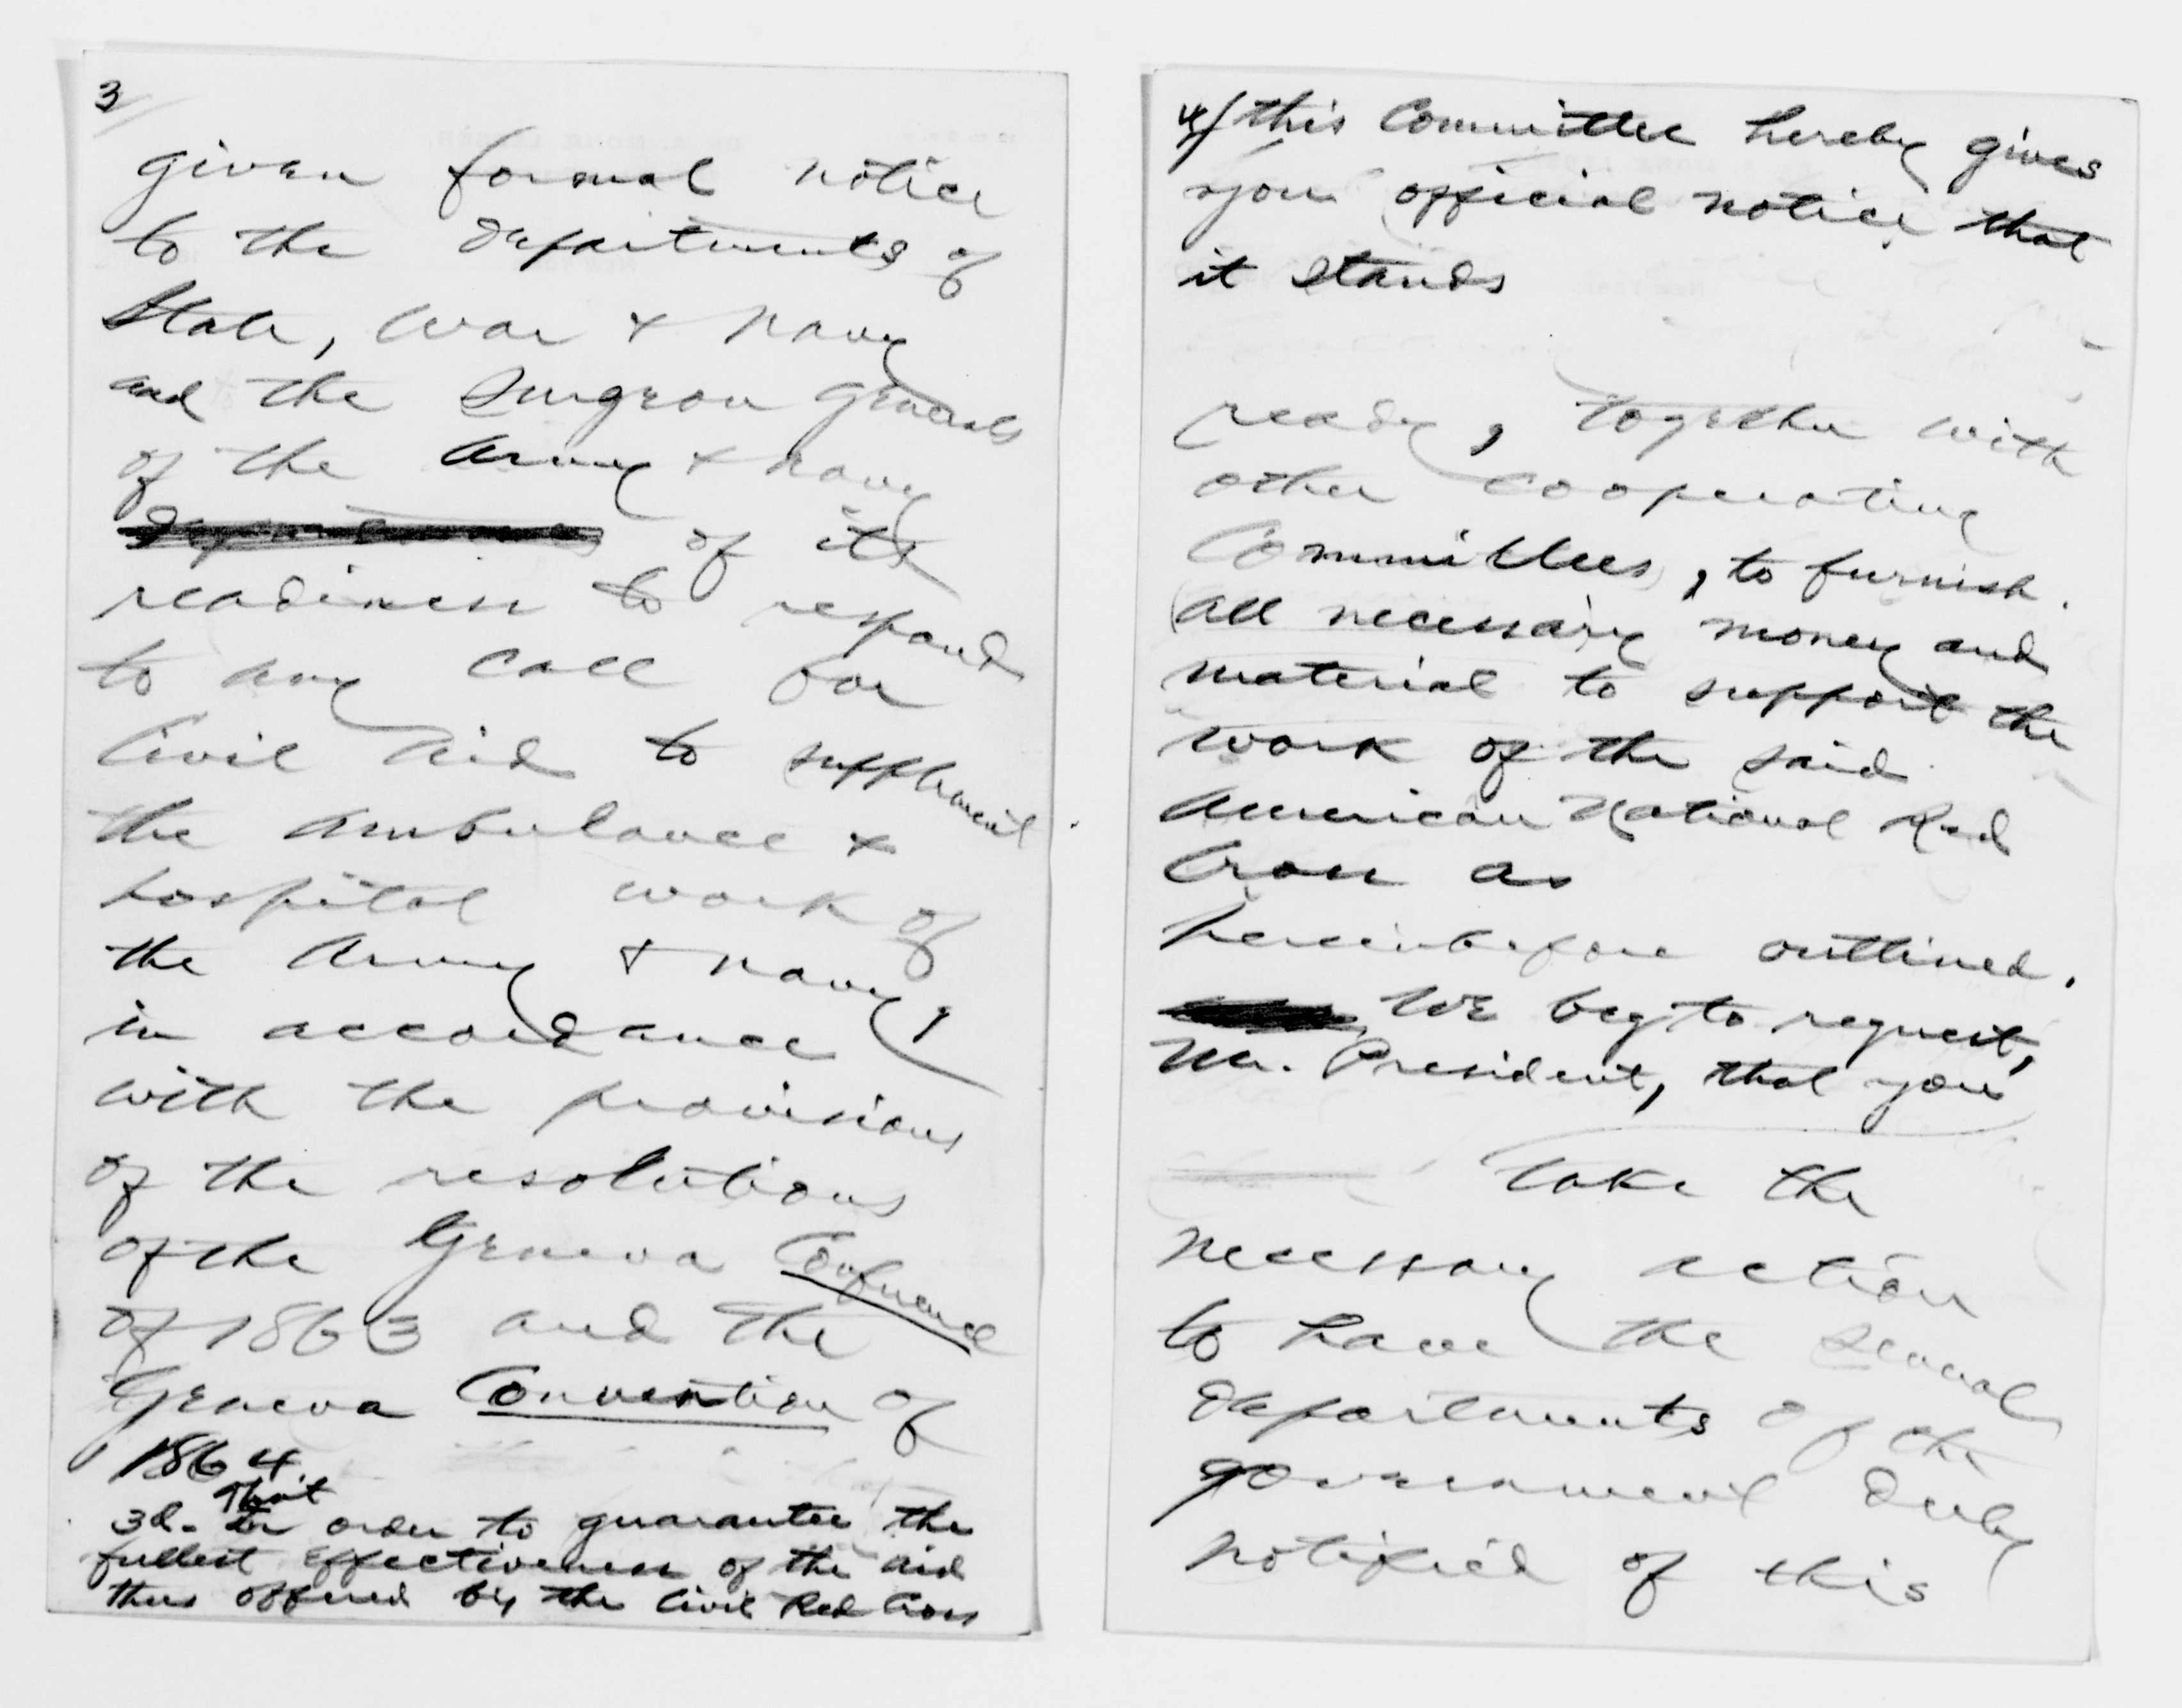 3/
given formal notice
to the departments of
State, War & Navy
and the Surgeon Generals
of the Army & Navy
departments of its
readiness to respond
to any call for
Civil Aid to supplement
the ambulance &
hospital work of
the Army & Navy,
in accordance
with the provisions
of the resolutions
of the Geneva Conference
of 1863 and the
Geneva Convention of
1864
That
3d. In order to guarantee the
fullest effectiveness of the aid
thus offered by the Civil Red Cross
4/ this Committee hereby gives
you official notice that
it stands
ready, together with
other cooperating
Committees, to furnish
all necessary money and
material to support the
work of the said
American National Red
Cross as
hereinbefore outlined.
We beg to request,
Mr. President, that you
take the
necessary action
to have the several
departments of the
government duly
notified of this